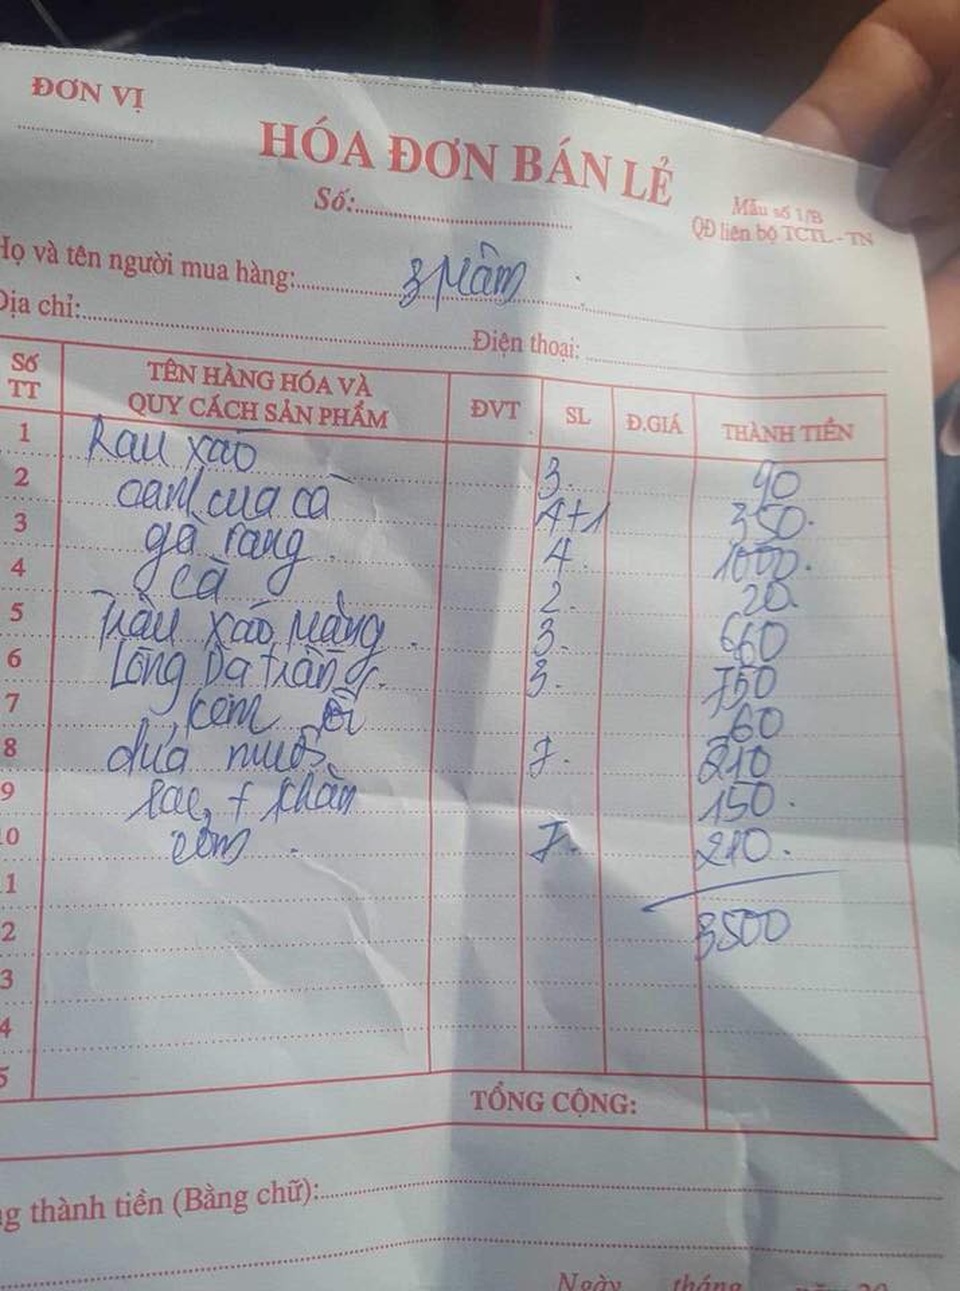 ĐƠN VỊ
HÓA ĐƠN BÁN LẺ
Số:
Mẫu số 1/B
QĐ liên bộ TCTL - TN
Họ và tên người mua hàng: 3 Mâm
Địa chỉ: Điện thoại:
Số TT TÊN HÀNG HÓA VÀ QUY CÁCH SẢN PHẨM ĐVT SL Đ.GIÁ THÀNH TIỀN
1 Rau xào 3 90
2 canh cua cà 4+1 350
3 gà rang 4 1000
4 cà 2 20
5 Trâu xào Măng 3 660
6 Lòng Dạ tràng 3 750
7 kèm 60
8 dứa nước 7 210
9 lạc, + khăn 150
10 cơm 7 210
1
2 3500
3
4
5
TỔNG CỘNG:
ng thành tiền (Bằng chữ):
Ngày tháng năm 20